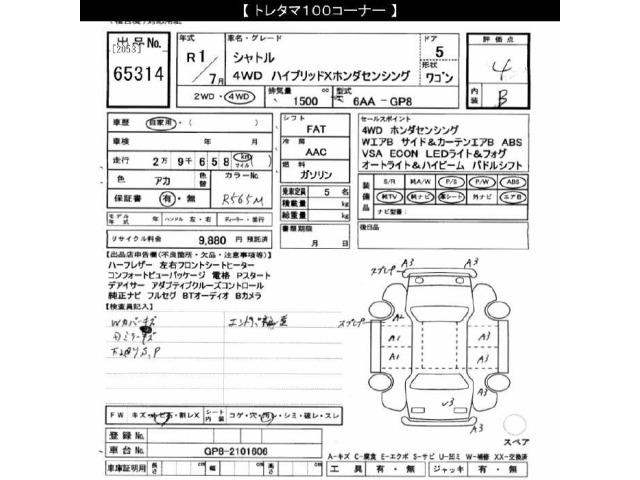 【 トレタマ100コーナー 】
出品No.
[2053]
65314
年式
R1
7月
車名・グレード
シャトル
4WD ハイブリッドXホンダセンシング
ドア
5
形状
ワゴン
評価点
4
内装
B
2WD・4WD
排気量
cc
1500
型式
6AA -GP8
車歴
自家用・( )
車検
年 月
走行
2万 9千 6 5 8 km マイル
色
アカ
色替
カラーNo.
R565M
保証書
有・無
モデル年式
年
ハンドル
左・右
ディーラー・並行
リサイクル料金
9,880 円 預託済
シフト
FAT
冷房
AAC
燃料
ガソリン
乗車定員
5 名
積載量
kg
総重量
kg
書類期限
月 日
セールスポイント
4WD ホンダセンシング
WエアB サイド&カーテンエアB ABS
VSA ECON LEDライト&フォグ
オートライト&ハイビーム パドルシフト
装備品
S/R
純A/W
P/S
P/W
ABS
純TV
純ナビ
革シート
外ナビ
エアB
ナビ型番:
後日品
【出品店申告欄(不良箇所・欠品・注意事項等)】
ハーフレザー 左右フロントシートヒーター
コンフォートビューパッケージ 電格 Pスタート
デアイサー アダプティブクルーズコントロール
純正ナビ フルセグ BTオーディオ Bカメラ
【検査員記入】
FW
キズ・トビ石・割レX
シート内装
コゲ・穴・汚レ・シミ・破レ・スレ
登録No.
車台No.
GP8-2101606
車庫証明用
長さ
cm
幅
cm
高さ
cm
A3
A3
A3
A2
A1
A1
A3
A3
A3
A3
スペア
A-キズ C-腐食 E-エクボ S-サビ U-凹ミ W-補修 XX-交換済
工具
有・無
ジャッキ
有・無